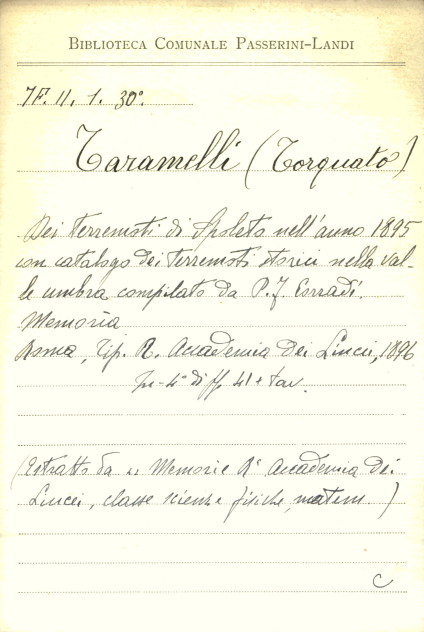 BIBLIOTECA COMUNALE PASSERINI-LANDI
7F. II. 1. 30°.
Taramelli (Torquato)
Dei terremoti di Spoleto nell'anno 1895
con catalogo dei terremoti storici nella val-
le umbra compilato da P. J. Corradi.
Memoria
Roma, Tip. R. Accademia dei Lincei, 1896
in-4° di ff. 41 + tav.
(Estratto da "Memorie Rª Accademia dei
Lincei, classe scienze fisiche, matem.)
C